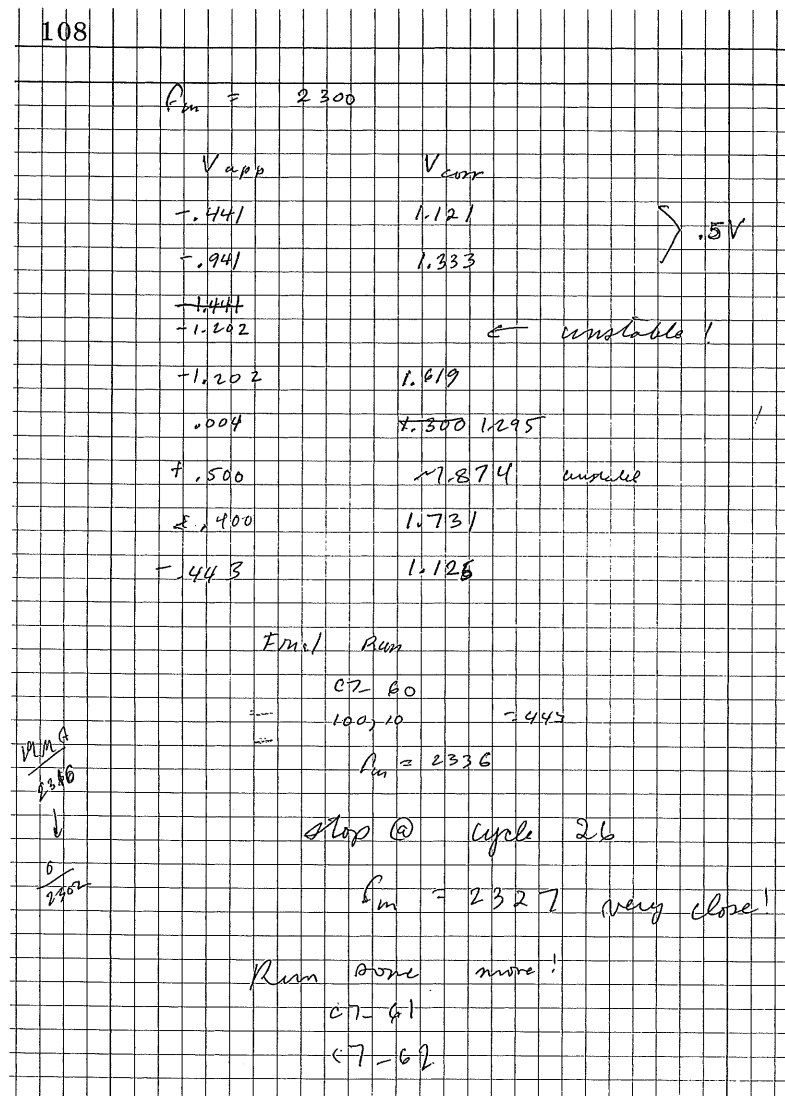 108
fm = 2300
V app V corr
-.441 1.121
-.941 1.333
} .5V
-1.441
-1.202 ← unstable!
-1.202 1.619
.004 1.300 1.295
+.500 ~1.874
.400 1.731
-.443 1.126
Final Run
C7-60
100, 10
fm = 2336
stop @ cycle 26
↓
0
2302
fm = 2327 very close!
Run some more!
C7-61
C7-62